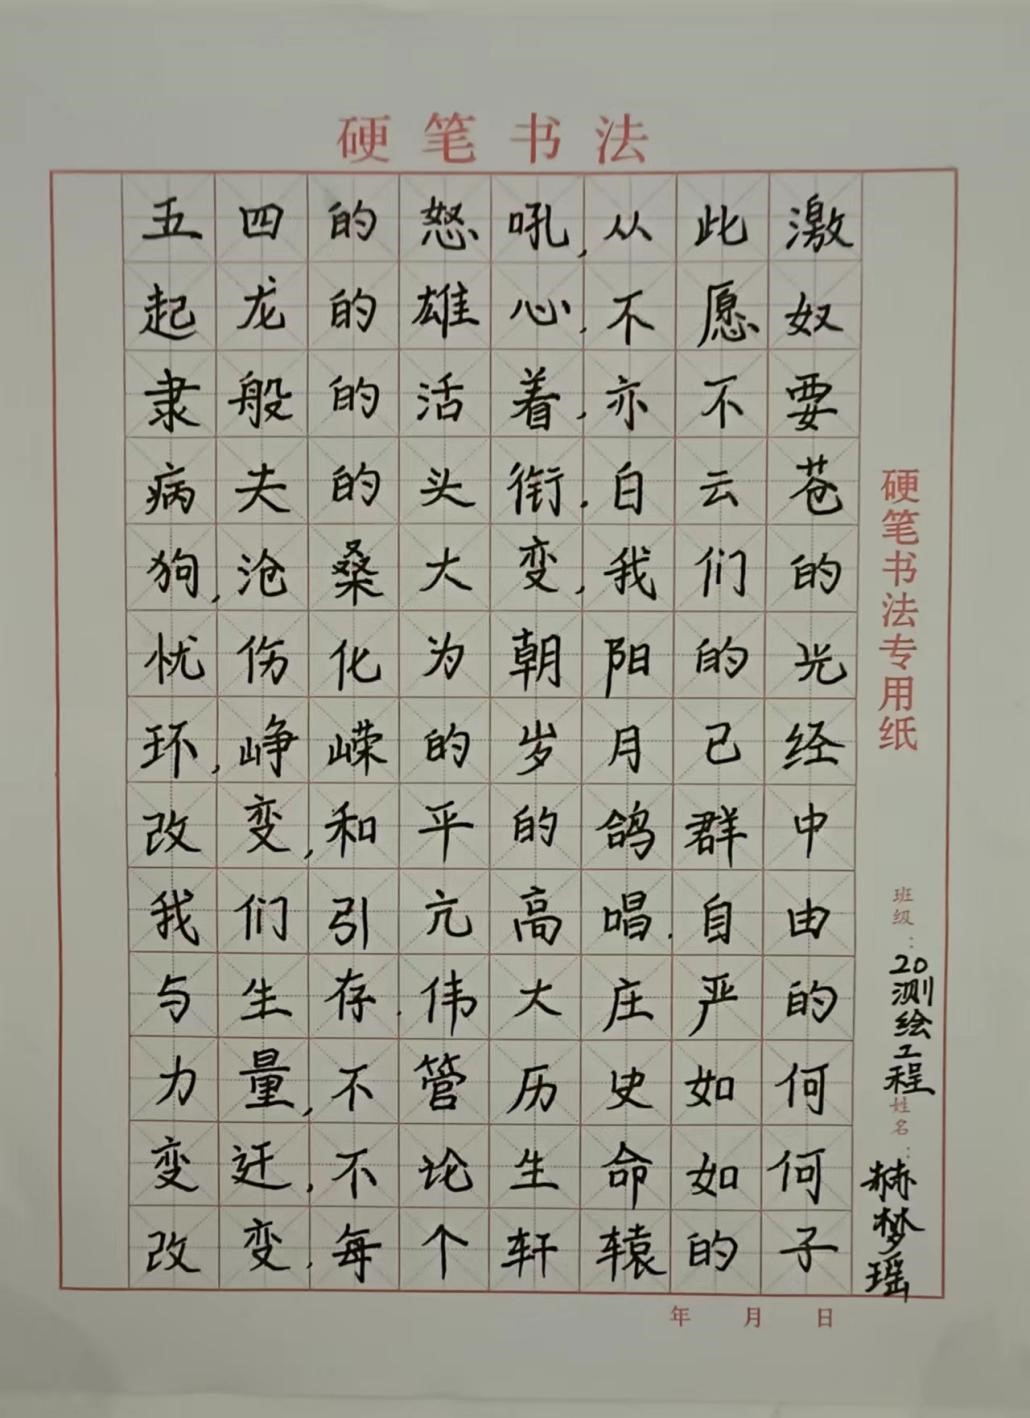 硬笔书法
五四的怒吼,从此激
起龙的雄心,不愿奴
隶般的活着,亦不要
病夫的头衔,白云苍
狗,沧桑大变,我们的
忧伤化为朝阳的光
环,峥嵘的岁月已经
改变,和平的鸽群中
我们引亢高唱,自由
与生存,伟大庄严的
力量,不管历史如何
变迁,不论生命如何
改变,每个轩辕的子
硬笔书法专用纸
班级:20测绘工程
姓名:赫梦瑶
年 月 日